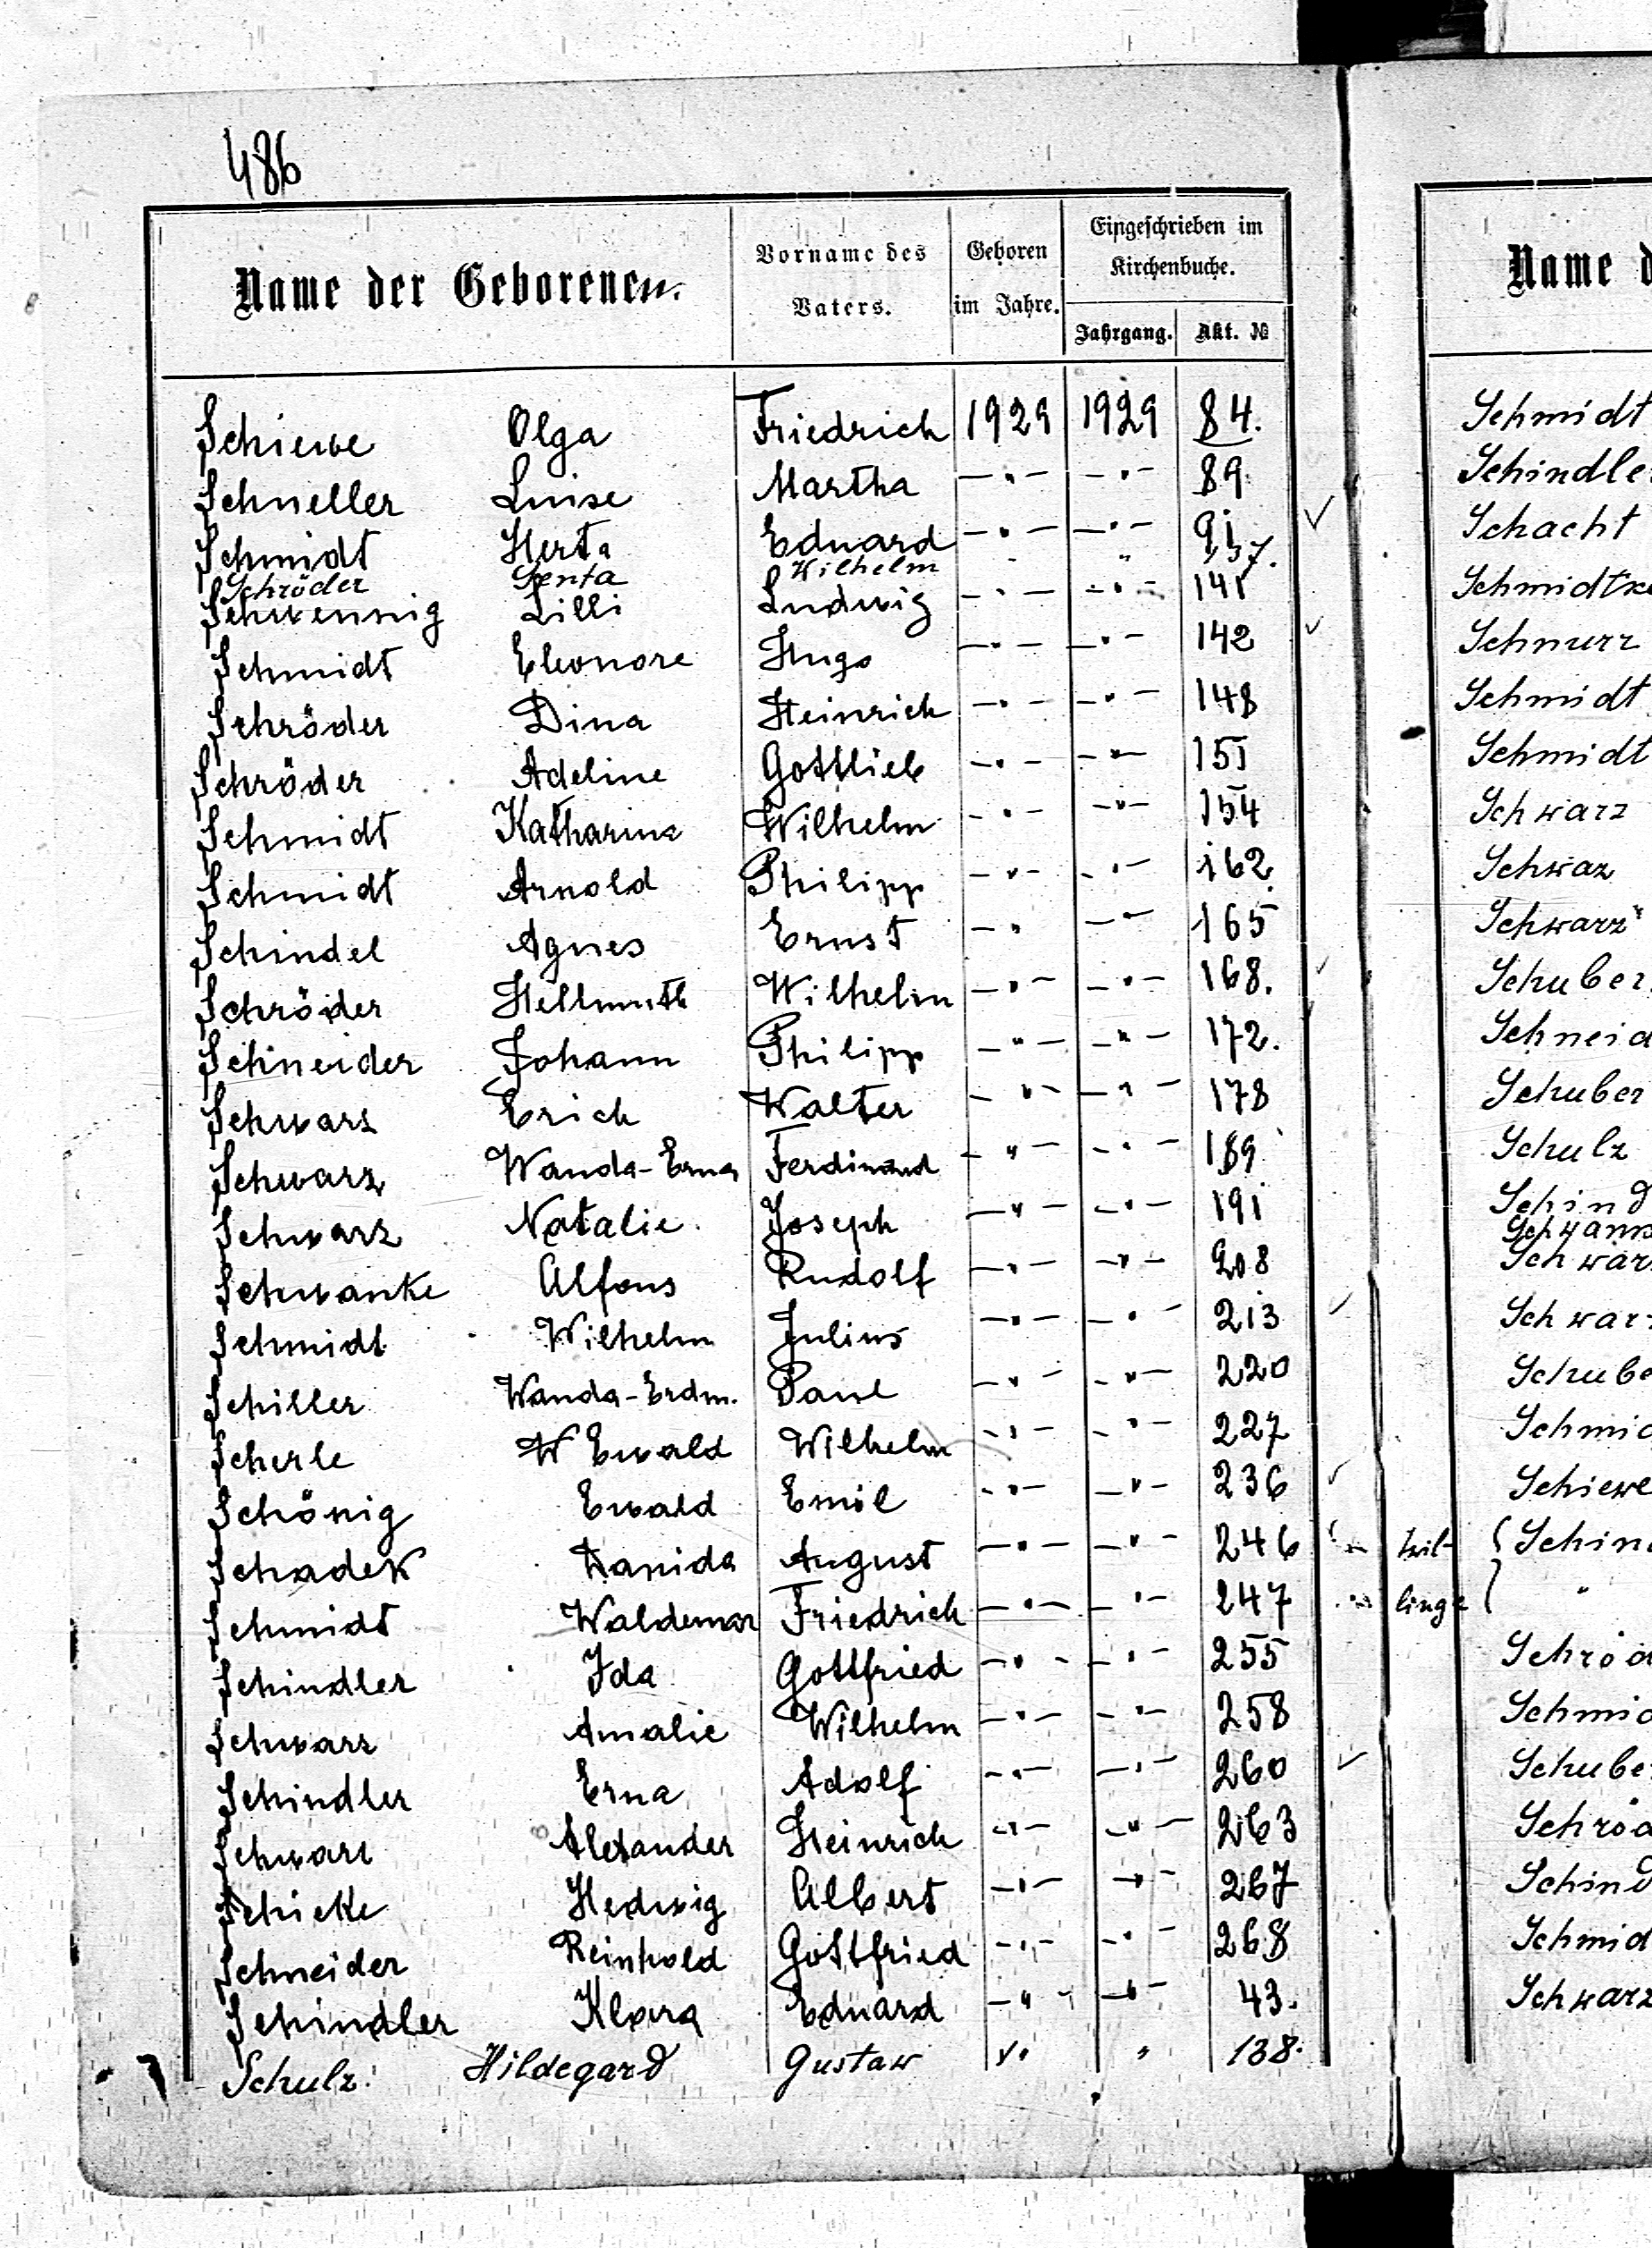 486
Name der Geborenen. Vorname des Vaters. Geboren im Jahre. Eingeschrieben im Kirchenbuche. Jahrgang. Akt. №
Schiewe Olga Friedrich 1929 1929 84.
Schneller Luise Martha -"- -"- 89.
Schmidt Herta Eduard -"- -"- 91
Schröder Senta Wilhelm " " 137.
Schwennig Lilli Ludwig -"- -"- 141
Schmidt Eleonore Hugo -"- -"- 142
Schröder Dina Heinrich -"- -"- 148
Schröder Adeline Gottlieb -"- -"- 151
Schmidt Katharina Wilhelm -"- -"- 154
Schmidt Arnold Philipp -"- -"- 162.
Schindel Agnes Ernst -" -"- 165
Schröder Hellmuth Wilhelm -"- -"- 168.
Schneider Johann Philipp -"- -"- 172.
Schwarz Erich Walter -"- -"- 178
Schwarz Wanda-Erna Ferdinand -"- -"- 189
Schwarz Natalie Joseph -"- -"- 191
Schwanke Alfons Rudolf -"- -"- 208
Schmidt Wilhelm Julius -"- -"- 213
Schiller Wanda-Erdm. Paul -"- -"- 220
Scherle W Ewald Wilhelm -"- -"- 227
Schönig Ewald Emil -"- -"- 236
Schadek Wanida August -"- -"- 246
Schmidt Waldemar Friedrich -"- -"- 247
Schindler Ida Gottfried -"- -"- 255
Schwarz Amalie Wilhelm -"- -"- 258
Schindler Erna Adolf -"- -"- 260
Schwarz Alexander Heinrich -"- -"- 263
Schicke Hedwig Albert -"- -"- 267
Schneider Reinhold Gottfried -"- -"- 268
Schindler Klara Eduard -"- -"- 43.
Schulz Hildegard Gustaw " " 138.
Name d
Schmidt
Schindle
Schacht
Schmidtke
Schnurr
Schmidt
Schmidt
Schwarz
Schwaz
Schwarz
Schuber
Schneid
Schuber
Schulz
Schind
Schwank
Schwar
Schwar
Schube
Schmid
Schiewe
Zwil- { Schin
linge "
Schröd
Schmid
Schube
Schröd
Schind
Schmid
Schwarz